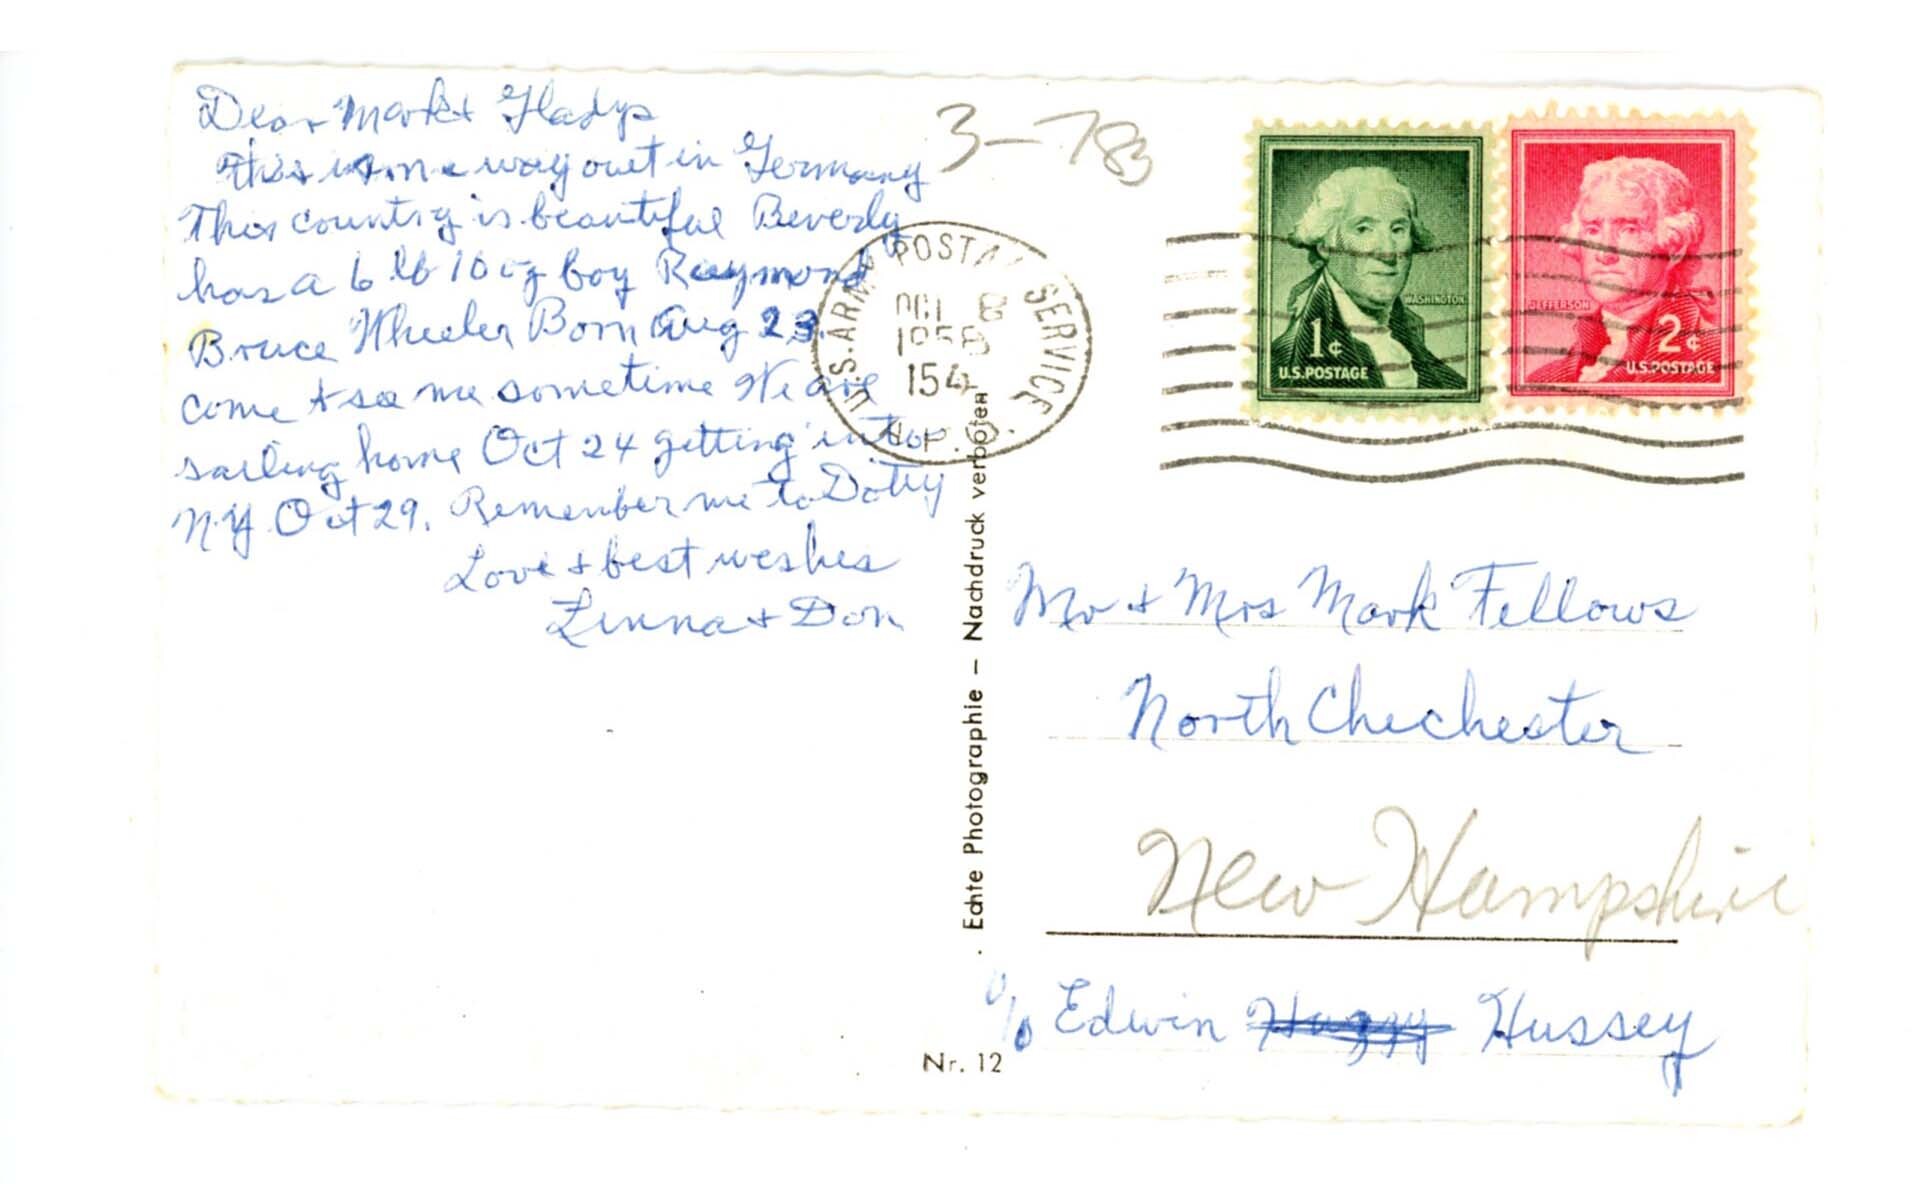 Dear Mark + Gladys
This is me way out in Germany
This country is beautiful Beverly
has a 6 lb 10 oz boy Raymond
Bruce Wheeler Born Aug 23.
come + see me sometime We are
sailing home Oct 24 getting into
NY Oct 29. Remember me to Dotty
Love + best weshes
Linna + Don
3-783
U.S. ARMY POSTAL SERVICE
OCT 8
1958
154
A.P.O.
WASHINGTON
1¢
U.S. POSTAGE
JEFFERSON
2¢
U.S. POSTAGE
Echte Photographie – Nachdruck verboten
Mr + Mrs Mark Fellows
North Chechester
New Hampshire
c/o Edwin Hussey
Nr. 12